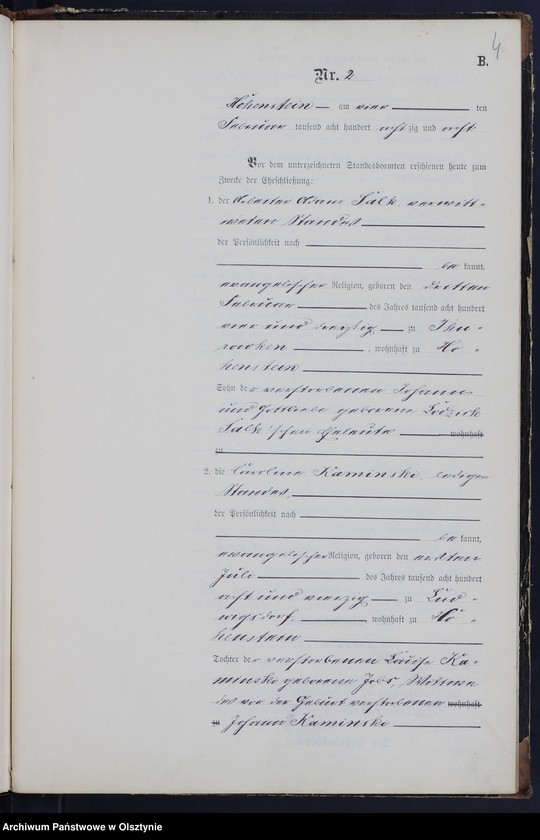 4
B.
Nr. 2
Hohenstein am vier ten
Februar tausend acht hundert acht zig und acht
Vor dem unterzeichneten Standesbeamten erschienen heute zum
Zwecke der Eheschließung:
1. der Arbeiter Adam Salk verwitt-
weten Standes
der Persönlichkeit nach
be kannt,
evangelischer Religion, geboren den dritten
Februar des Jahres tausend acht hundert
vier und dreizig zu Thu-
, wohnhaft zu Ho-
henstein
Sohn der verstorbenen Johann
und Gottliebe geborene
Salk'schen Eheleute wohnhaft
zu
2. die Caroline Kaminski, ledigen
Standes,
der Persönlichkeit nach
be kannt,
evangelischer Religion, geboren den
Juli des Jahres tausend acht hundert
acht und vierzig zu Lud-
wigsdorf, wohnhaft zu Ho-
henstein
Tochter der verstorbenen Louise Ka-
minski geborene Jobs, Wittwe
des vor der Geburt verstorbenen wohnhaft
zu Johann Kaminski
Archiwum Państwowe w Olsztynie